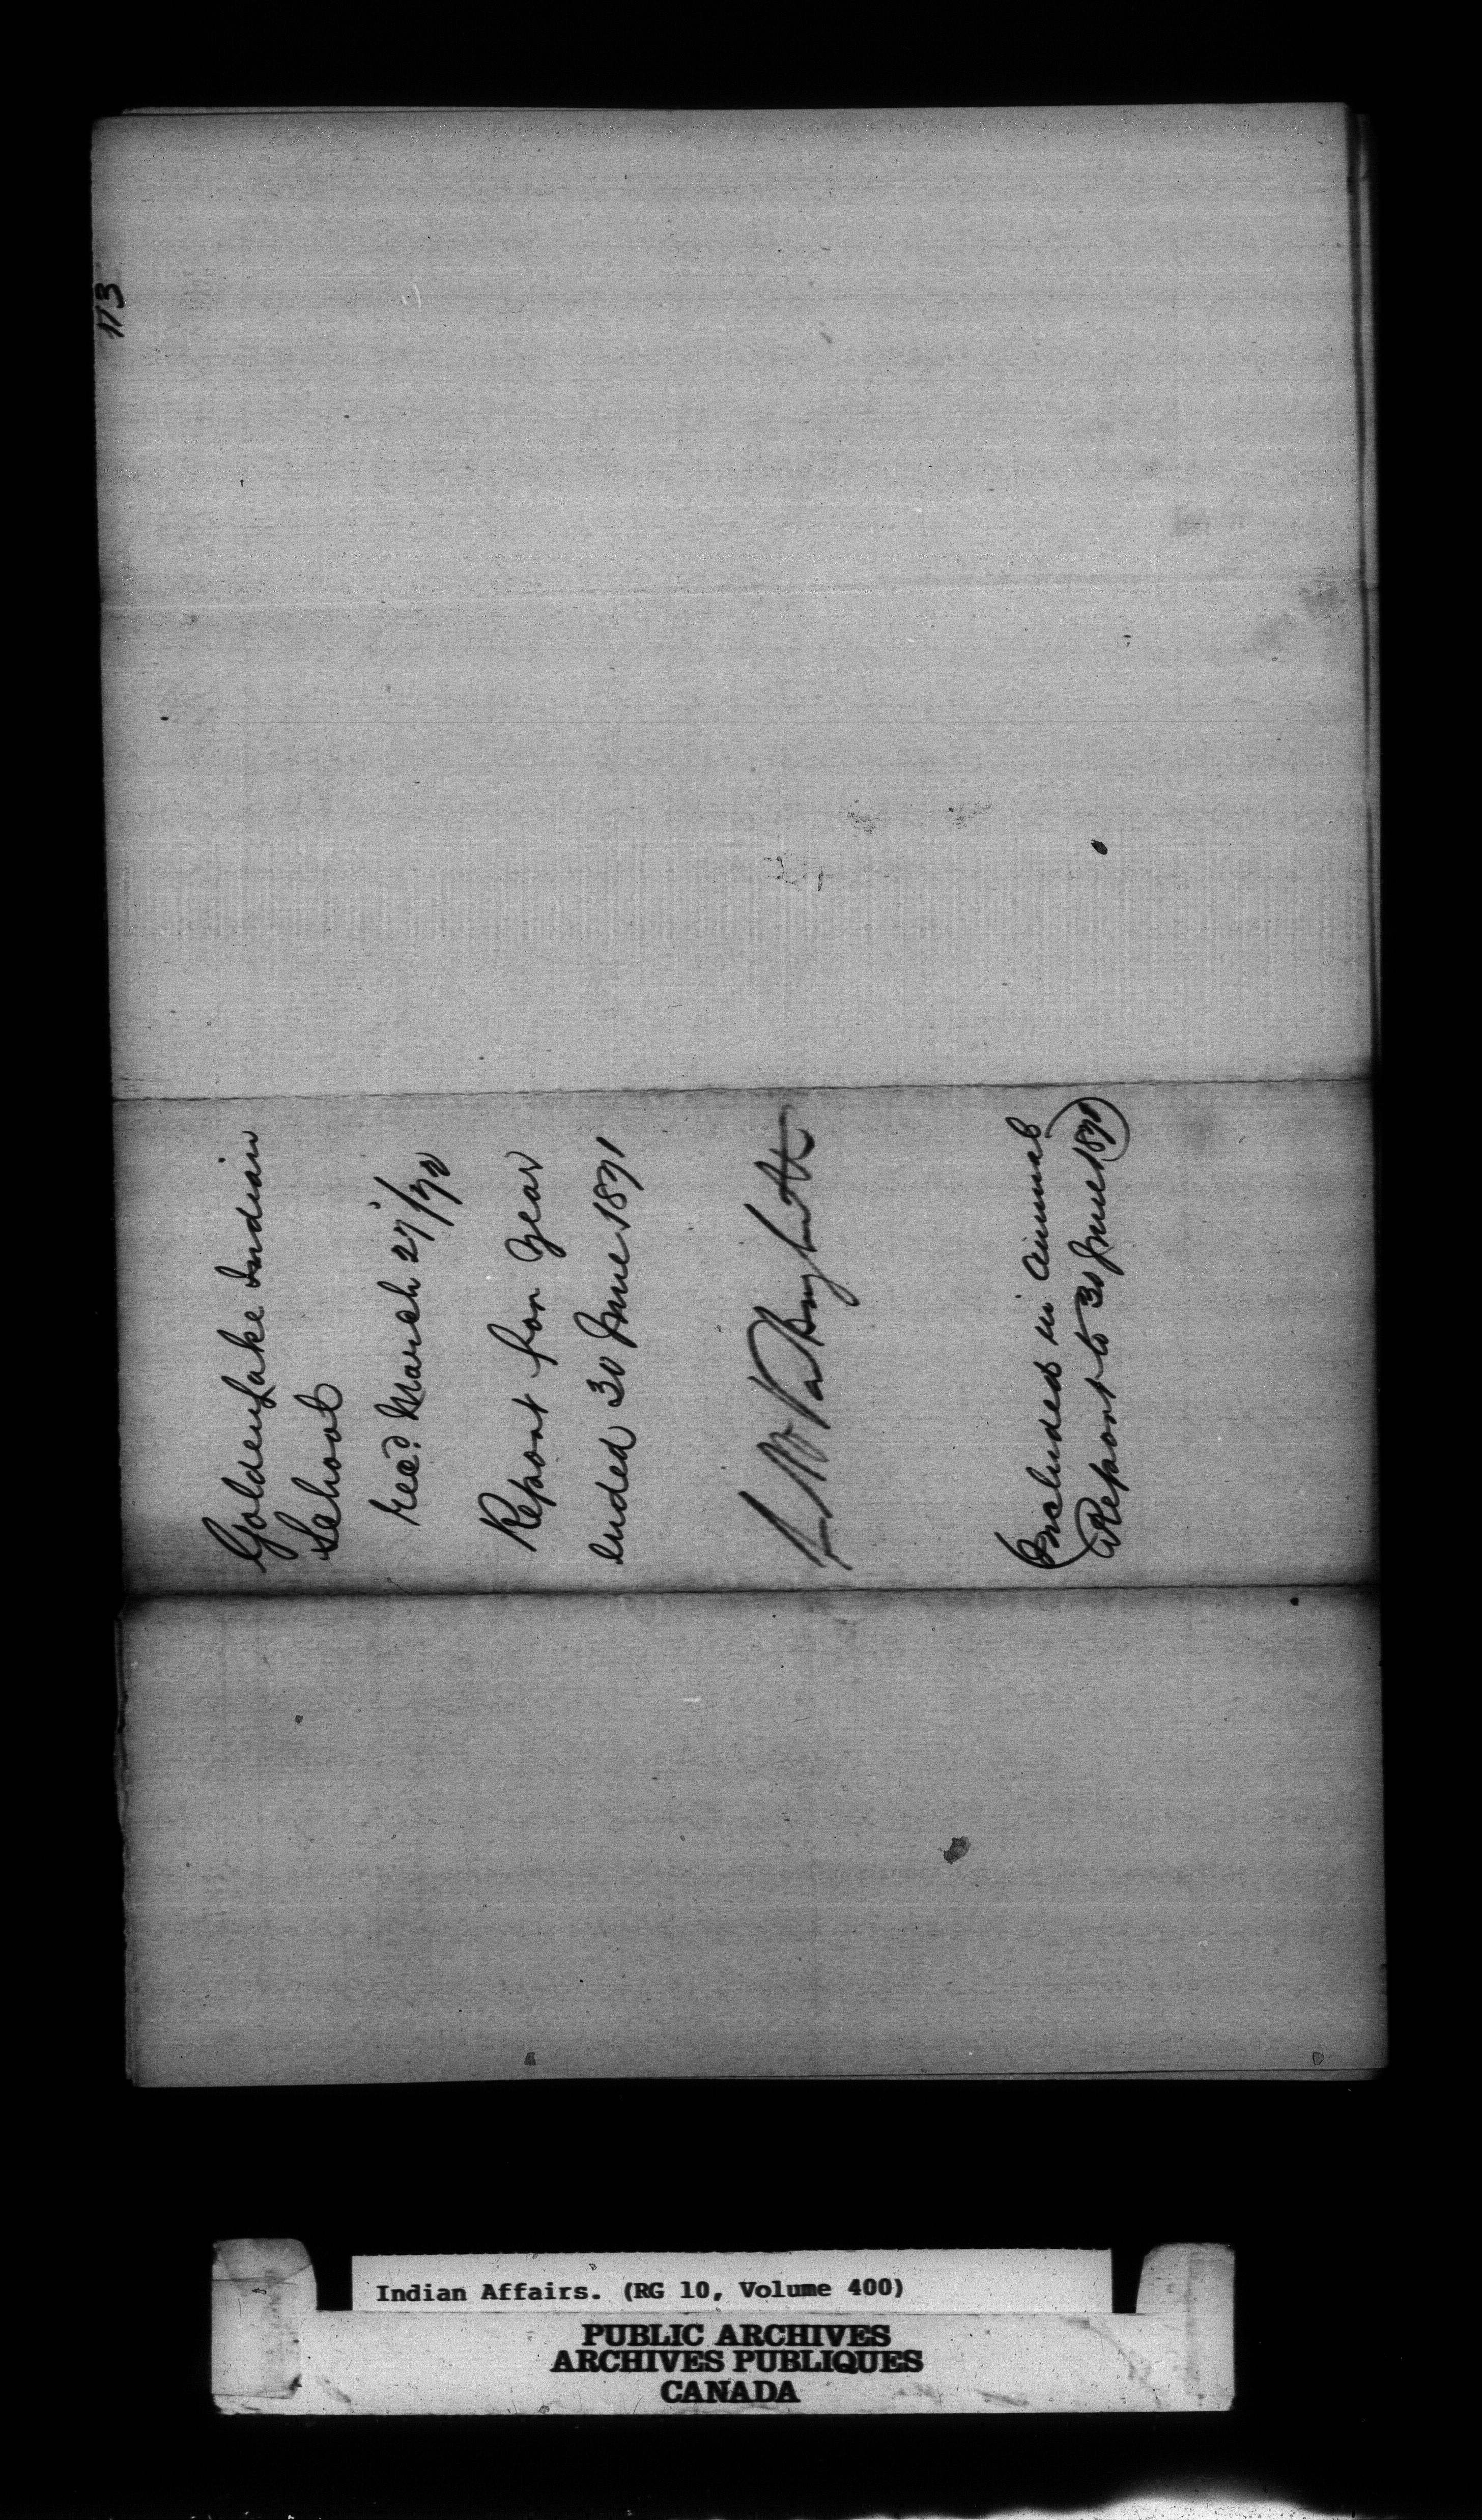 173
Golden Lake Indian
School
recd. March 27/72
Report for Year
ended 30 June 1871
Included in Annual
Report to 30 June 1871
Indian Affairs. (RG 10, Volume 400)
PUBLIC ARCHIVES
ARCHIVES PUBLIQUES
CANADA